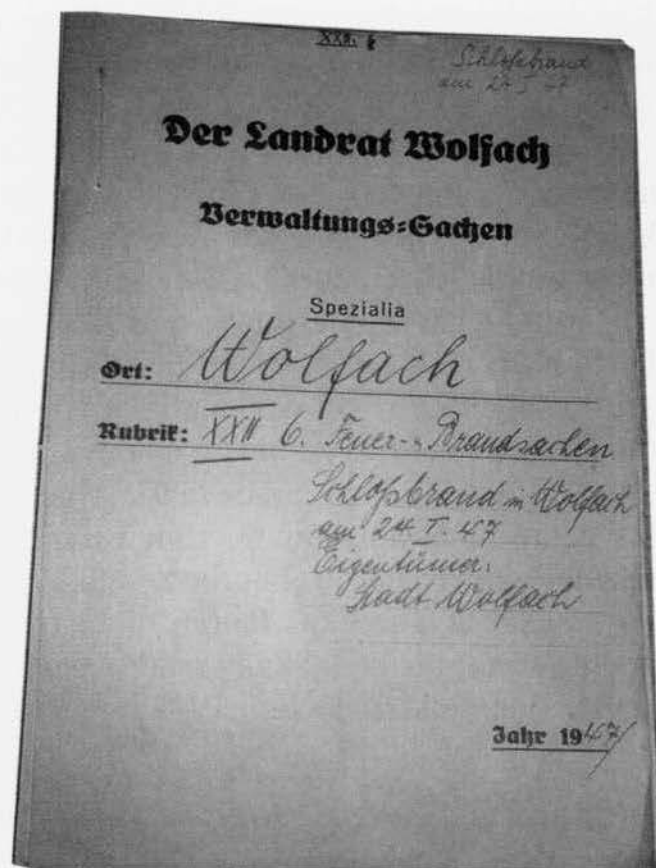 XXII. 6
Schloßbrand
am 24 I 47
Der Landrat Wolfach
Verwaltungs=Sachen
Spezialia
Ort: Wolfach
Rubrik: XXII 6. Feuer- u Brandsachen
Schloßbrand in Wolfach
am 24. I. 47
Eigentümer:
Stadt Wolfach
Jahr 1947